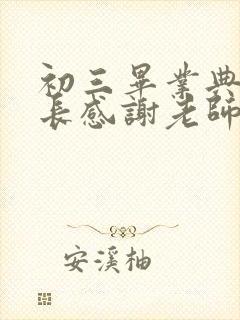 初三畢業典
長感謝老師
安溪柚